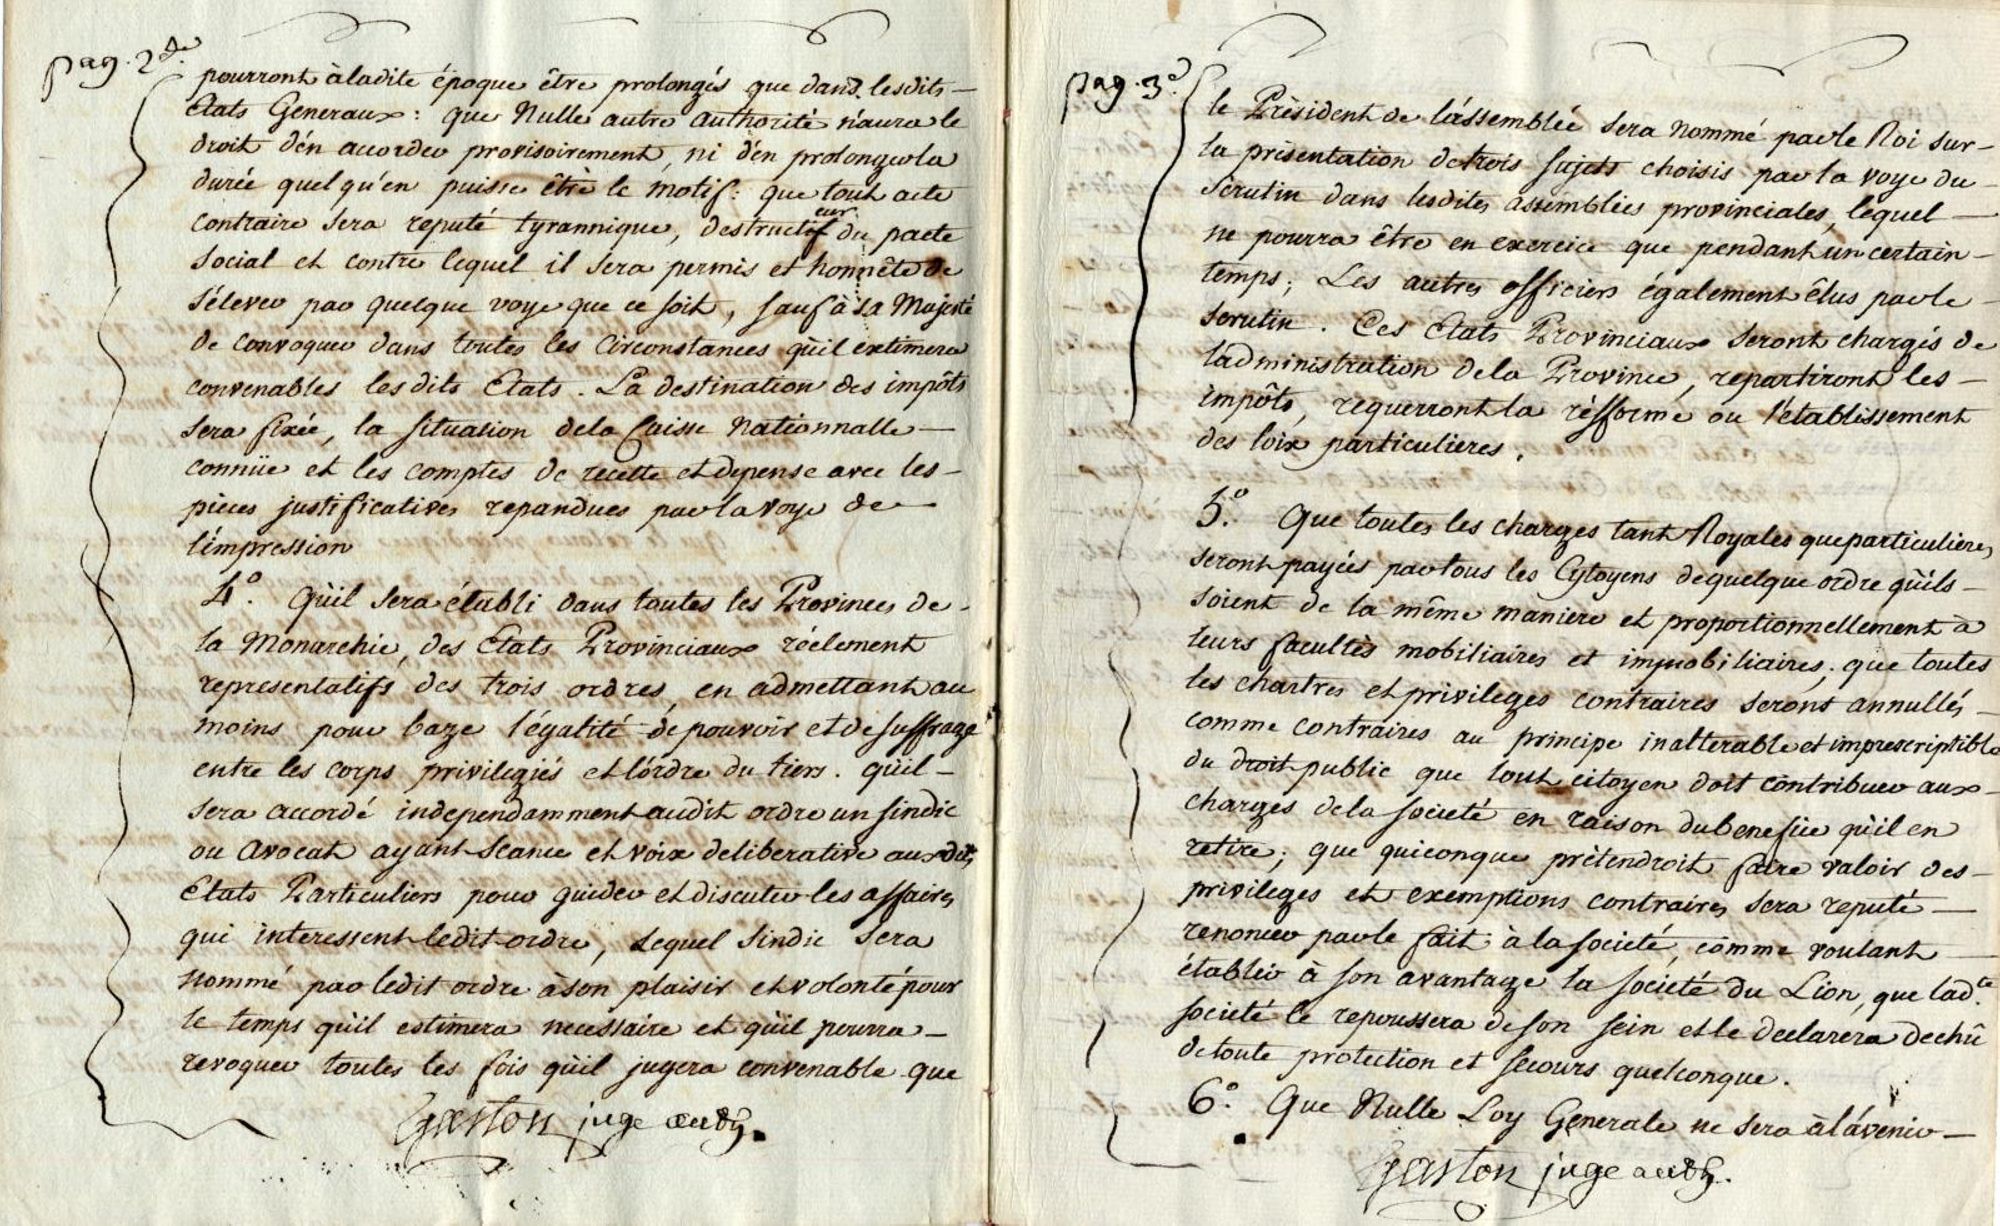 pag. 2de
pourront à ladite époque être prolongés que dans lesdits
Etats Generaux : que Nulle autre authorité n'aura le
droit d'én accorder provisoirement, ni d'én prolonger la
durée quel qu'en puisse être le motif : que tout acte
contraire sera reputé tyrannique, destructeur du pacte
social et contre lequel il sera permis et honnête de
s'élever par quelque voye que ce soit, sauf à sa Majesté
de convoquer dans toutes les Circonstances qu'il extimera
convenables lesdits Etats. La destination des impôts
sera fixée, la situation dela Caisse Nationnalle
connüe et les comptes de recette et depense avec les
pièces justificatives repandues par la voye de
l'impression
4o. Qu'il sera établi dans toutes les Provinces de
la Monarchie, des Etats Provinciaux réelement
representatifs des trois ordres, en admettant au
moins pour baze l'égalité de pouvoir et de suffrage
entre les corps privilegiés et l'órdre du tiers. qu'il
sera accordé independamment audit ordre un sindic
ou avocat ayant Seance et voix deliberative auxdits
Etats Particuliers pour guider et discuter les affaires
qui interessent ledit ordre, lequel Sindic sera
nommé par ledit ordre à son plaisir et volonté pour
le temps qu'il estimera necessaire et qu'il pourra
revoquer toutes les fois qu'il jugera convenable que
Gaston juge
pag. 3e
le Président de l'ássemblée sera nommé par le Roi sur
la présentation de trois sujets choisis par la voye du
Scrutin dans lesdites assemblées provinciales, lequel
ne pourra être en exercice que pendant un certain
temps ; Les autres officiers également élus par le
scrutin. Ces Etats Provinciaux seront chargés de
l'administration dela Province, repartiront les
impôts, requerront la réfforme ou l'établissement
des loix particulieres.
5o. Que toutes les charges tant Royales que particulieres
seront payées par tous les Cytoyens de quelque ordre qu'ils
soient de la même maniere et proportionnellement à
leurs facultés mobiliaires et immobiliaires ; que toutes
les chartres et privileges contraires seront annullés
comme contraires au principe inalterable et imprescriptible
du droit public que tout citoyen doit contribuer aux
charges dela societé en raison du benefice qu'il en
retire ; que quiconque prétendroit faire valoir des
privileges et exemptions contraires sera reputé
renoncer par le fait à la societé, comme voulant
établir à son avantage la societé du Lion, que lad.te
societé le repoussera de son sein et le declarera dechû
de toute protection et secours quelconque.
6o. Que Nulle Loy Generale ne sera à l'ávenir
Gaston juge